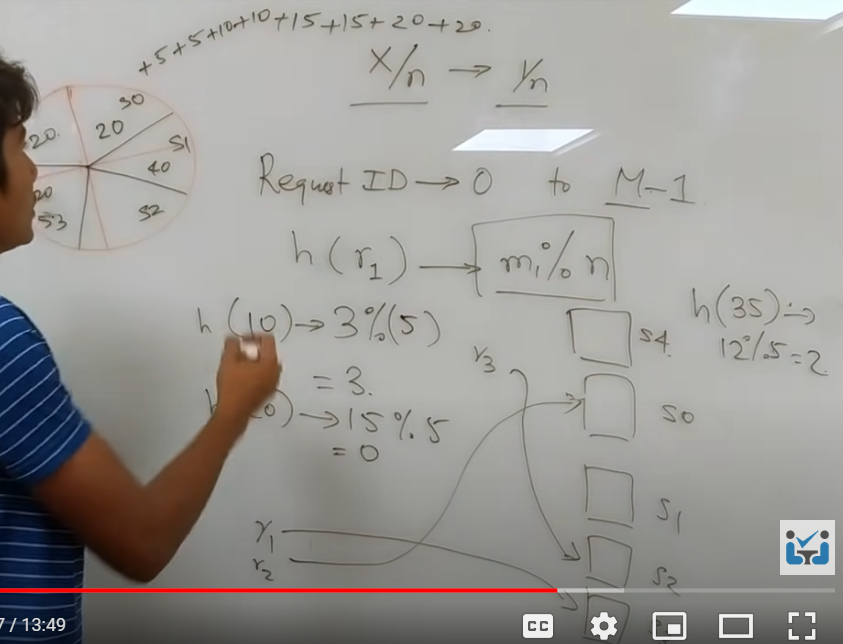 +5+5+10+10+15+15+20+20.
X/n → Y/n
30
20
20.
S1
40
S2
20
S3
Request ID → 0 to M-1
h(r1) → m1 % n
h(10) → 3%(5)
= 3.
→ 15 % 5
= 0
h(35) →
12%5 = 2
r3
S4.
S0
S1
S2
r1
r2
/ 13:49
CC